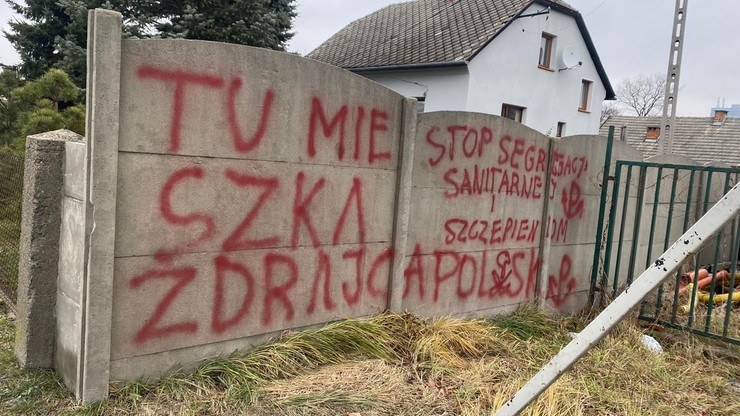 TU MIE
SZKA
ZDRAJCA POLSKI
STOP SEGREGACJI
SANITARNEJ
I
SZCZEPIENIOM